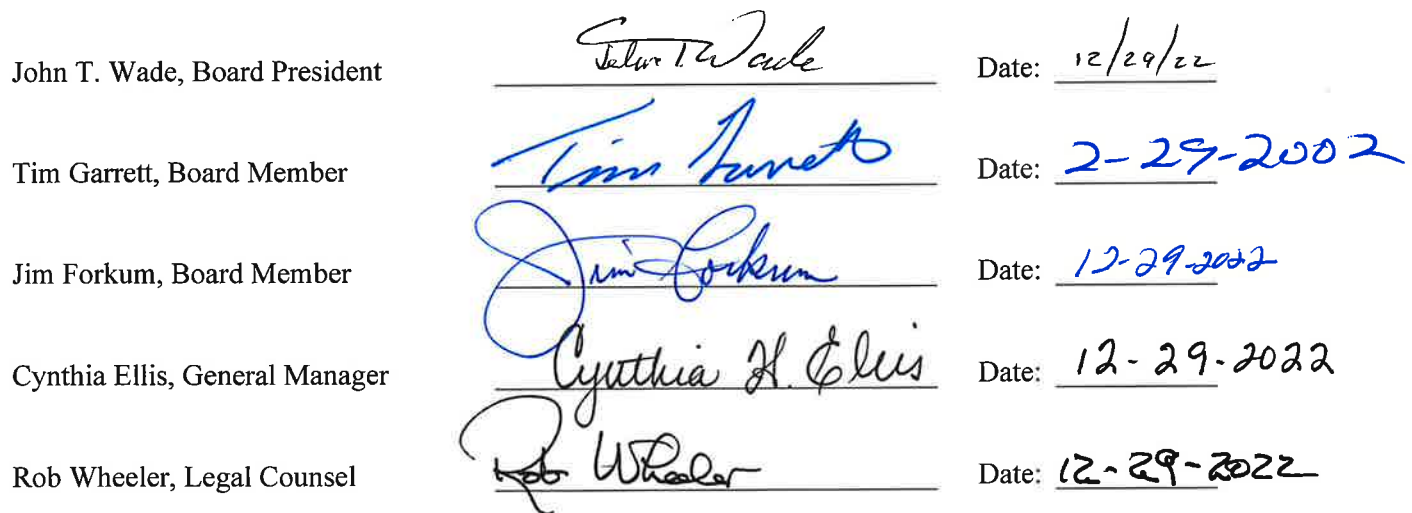 John T. Wade, Board President John T. Wade Date: 12/29/22
Tim Garrett, Board Member Tim Garrett Date: 2-29-2002
Jim Forkum, Board Member Jim Forkum Date: 12-29-2022
Cynthia Ellis, General Manager Cynthia H. Ellis Date: 12-29-2022
Rob Wheeler, Legal Counsel Rob Wheeler Date: 12-29-2022